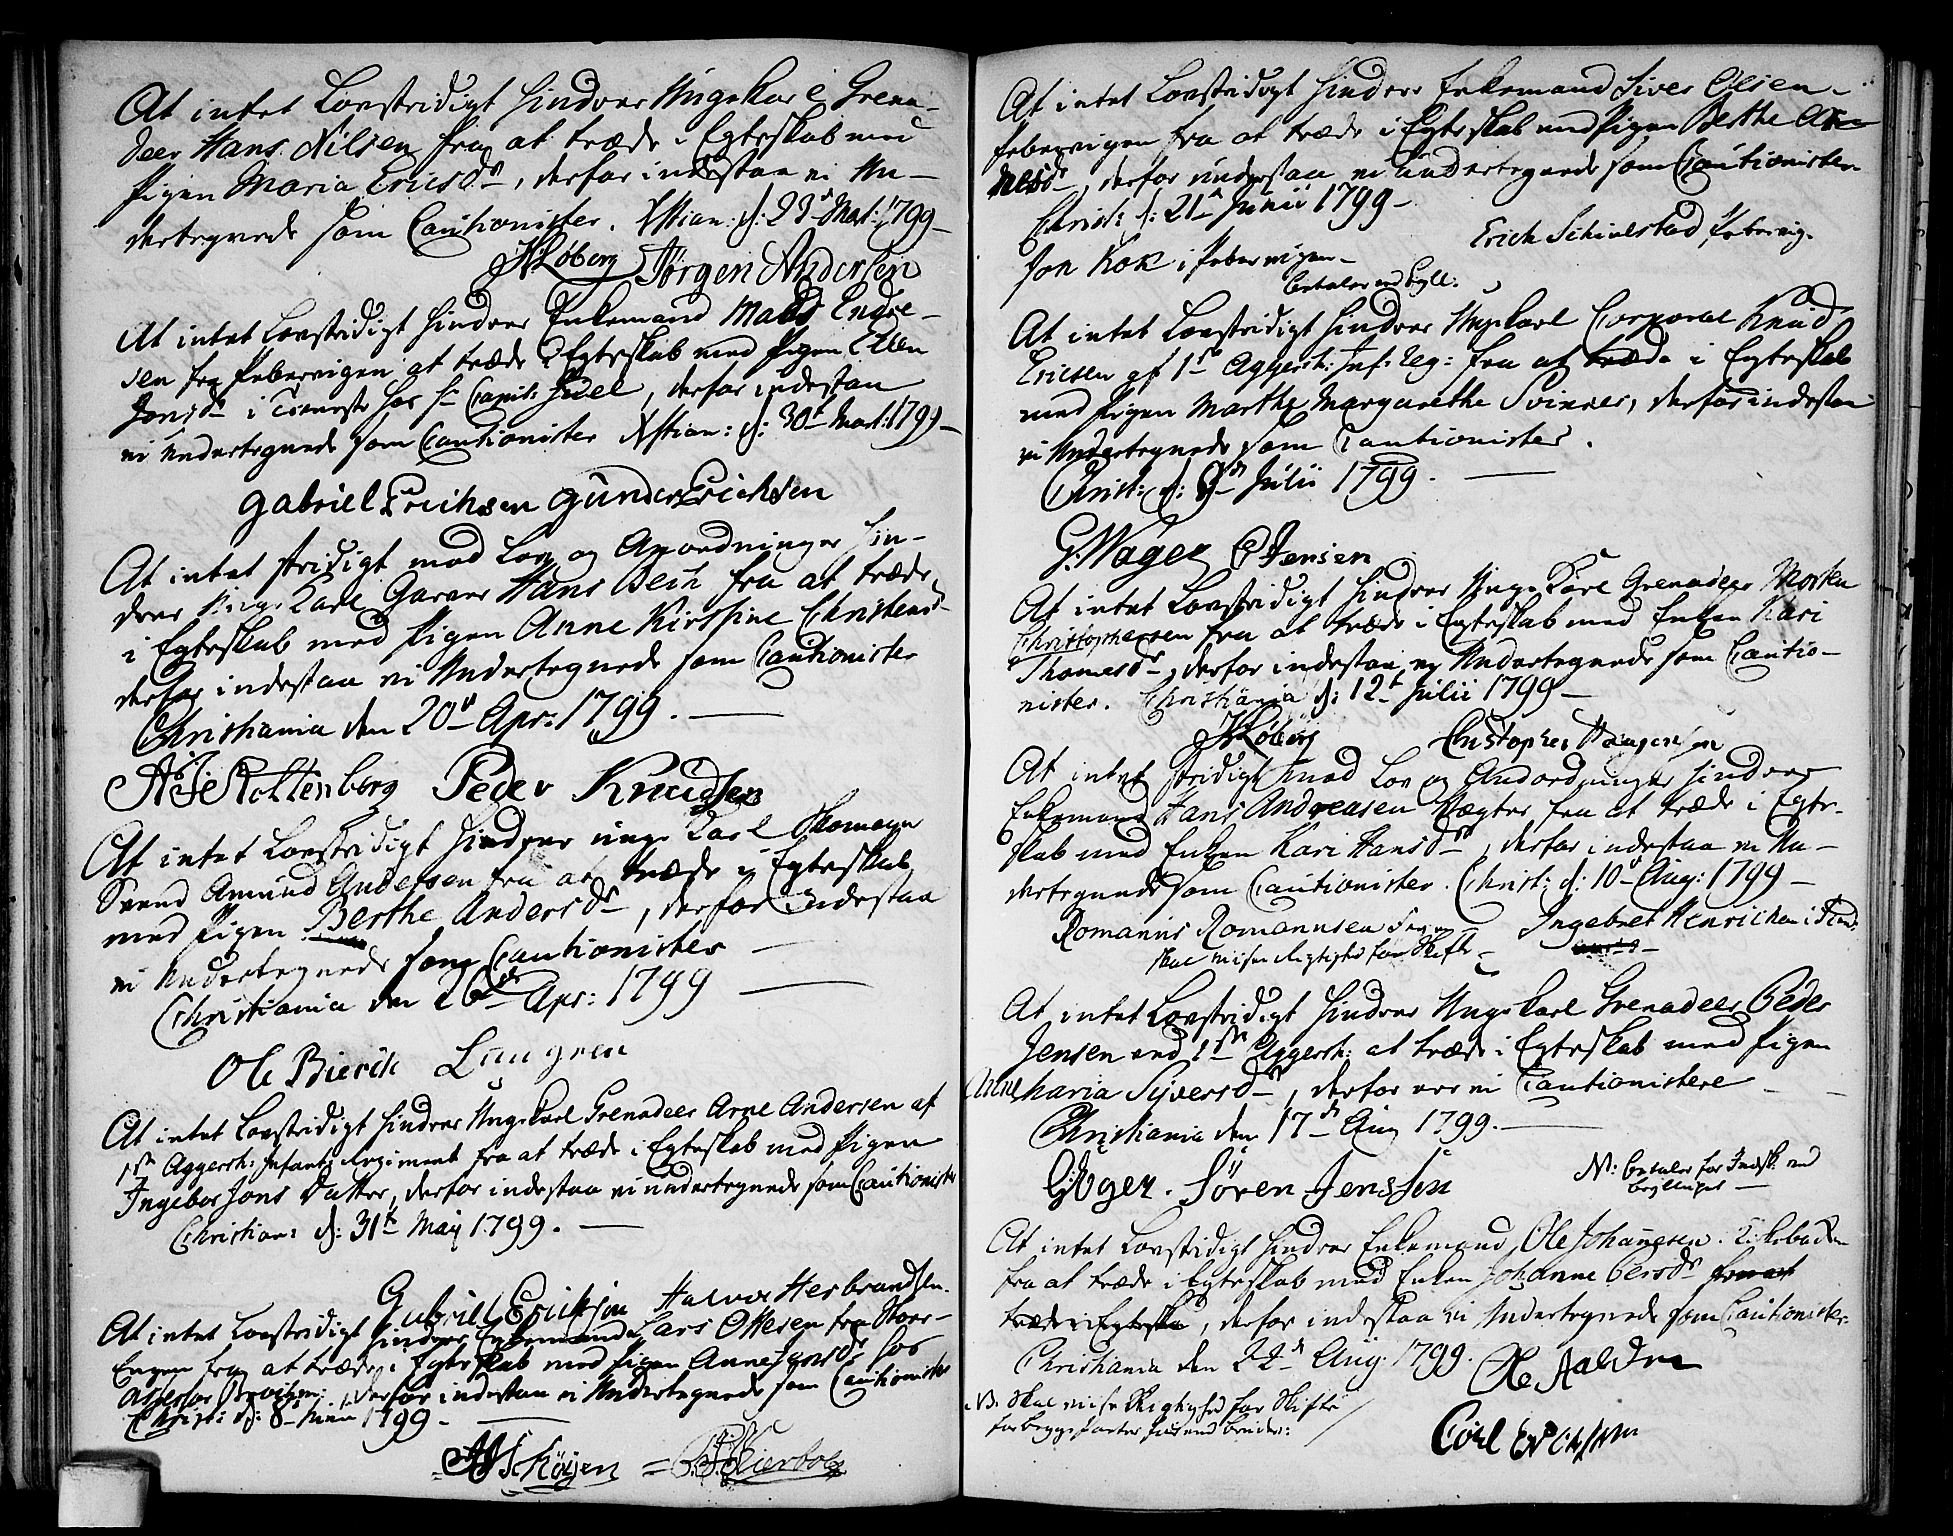 At intet Lovstridigt hindrer Ungekarl Grena-
deer Hans Nilsen fra at træde i Egteskab med
Pigen Maria Ericsdr, derfor indestaa vi Un-
dertegnede som Cautionister. Xstian: d: 23 Mart: 1799
Jørgen Andersen
At intet Lovstridigt hindrer Enkemand Mads Endre-
sen fra Pebervigen at træde i Egteskab med Pigen Ellen
Jonsdr i Tieneste hos Hr Capit: Juel, derfor indestaa
vi Undertegnede som Cautionister Xstian: d: 30t Mart: 1799
Gabriel Erichsen Gunder Erichsen
At intet stridigt mod Lov og Anordninger hin-
drer Unge Karl Garver Hans Bech fra at træde
i Egteskab med Pigen Anne Kirstine Christensdr
derfor indestaa vi Undertegnede som Cautionister
Christiania den 20de Apr: 1799.
Rottenborg Peder Knudsen
At intet Lovstridigt hindrer unge Karl Skomager
Svend Amund Andersen fra at træde i Egteskab
med Pigen Berthe Andersdr, derfor indestaa
vi Undertegnede som Cautionister
Christiania den 26de Apr: 1799
Ole Bierch Lungreen
At intet Lovstridigt hindrer Ungekarl Grenadeer Arne Andersen af
1ste Aggersh: Infant: Regiment fra at træde i Egteskab med Pigen
Ingebor Jons Datter, derfor indestaa vi undertegnede som Cautionister
Christian: d: 31t May 1799.
Gabriel Eriksen Halvor Herbrandsen.
At intet Lovstridigt hindrer Enkemand Lars Ottesen fra Store-
Engen fra at træde i Egteskab med Pigen Anne Jensdr hos
Assessor derfor indestaa vi Undertegnede som Cautionister
Christ: d: 8t Junii 1799.
Schøyen
At intet Lovstridigt hindrer Enkemand Siver Olsen
Pebervigen fra at træde i Egteskab med Pigen Berthe Ar-
nesdr, derfor indestaa vi undertegnede som Cautionister
Christ: d: 21 Junii 1799
Erich Schielstad, Pebervig.
Jon Kok i Pebervigen
betaler ved Byll:
At intet Lovstridigt hindrer Ungkarl Corporal Knud
Ericsen af 1ste Aggersh: Inf: Reg: fra at træde i Egteskab
med Pigen Marthe Margarethe Svinner, derfor indestaa
vi Undertegnede som Cautionister.
Christ: d: 9de Julii 1799.
G. Wager Jensen
At intet Lovstridigt hindrer Unge Karl Grenadeer Morten
Christophersen fra at træde i Egteskab med Enken Kari
Thomesdr, derfor indestaa vi Undertegnede som Cautio-
nister. Christiania d: 12t Julii 1799
Christopher Haagensen
At intet stridigt mod Lov og Andordninger hindrer
Enkemand Hans Andreasen Vægter fra at træde i Egte-
skab med Enken Kari Hansdr, derfor indestaa vi Un-
dertegnede som Cautionister. Christ: d: 10 Aug: 1799
Romanus Romanusen Ingebret Henrichsen i
skal vise Rigtighed for Skifte
At intet Lovstridigt hindrer Ungekarl Grenadeer Peder
Jensen ved 1ste Aggersh: at træde i Egteskab med Pigen
Anne Maria Sijversdr, derfor ere vi Cautionistere
Christiania den 17de Aug 1799.
Søren Jenssen
NB: betaler for Indsk: ved
brylluppet
At intet Lovstridigt hindrer Enkemand Ole Johanesen
fra at træde i Egteskab med Enken Johanne Persdr fra at
træde i Egteska, derfor indestaa vi Undertegnede som Cautionister
Christiania den 22de Aug. 1799.
NB. Skal vise Rigtighed for Skifte
for begge parter
Carl Erichsen